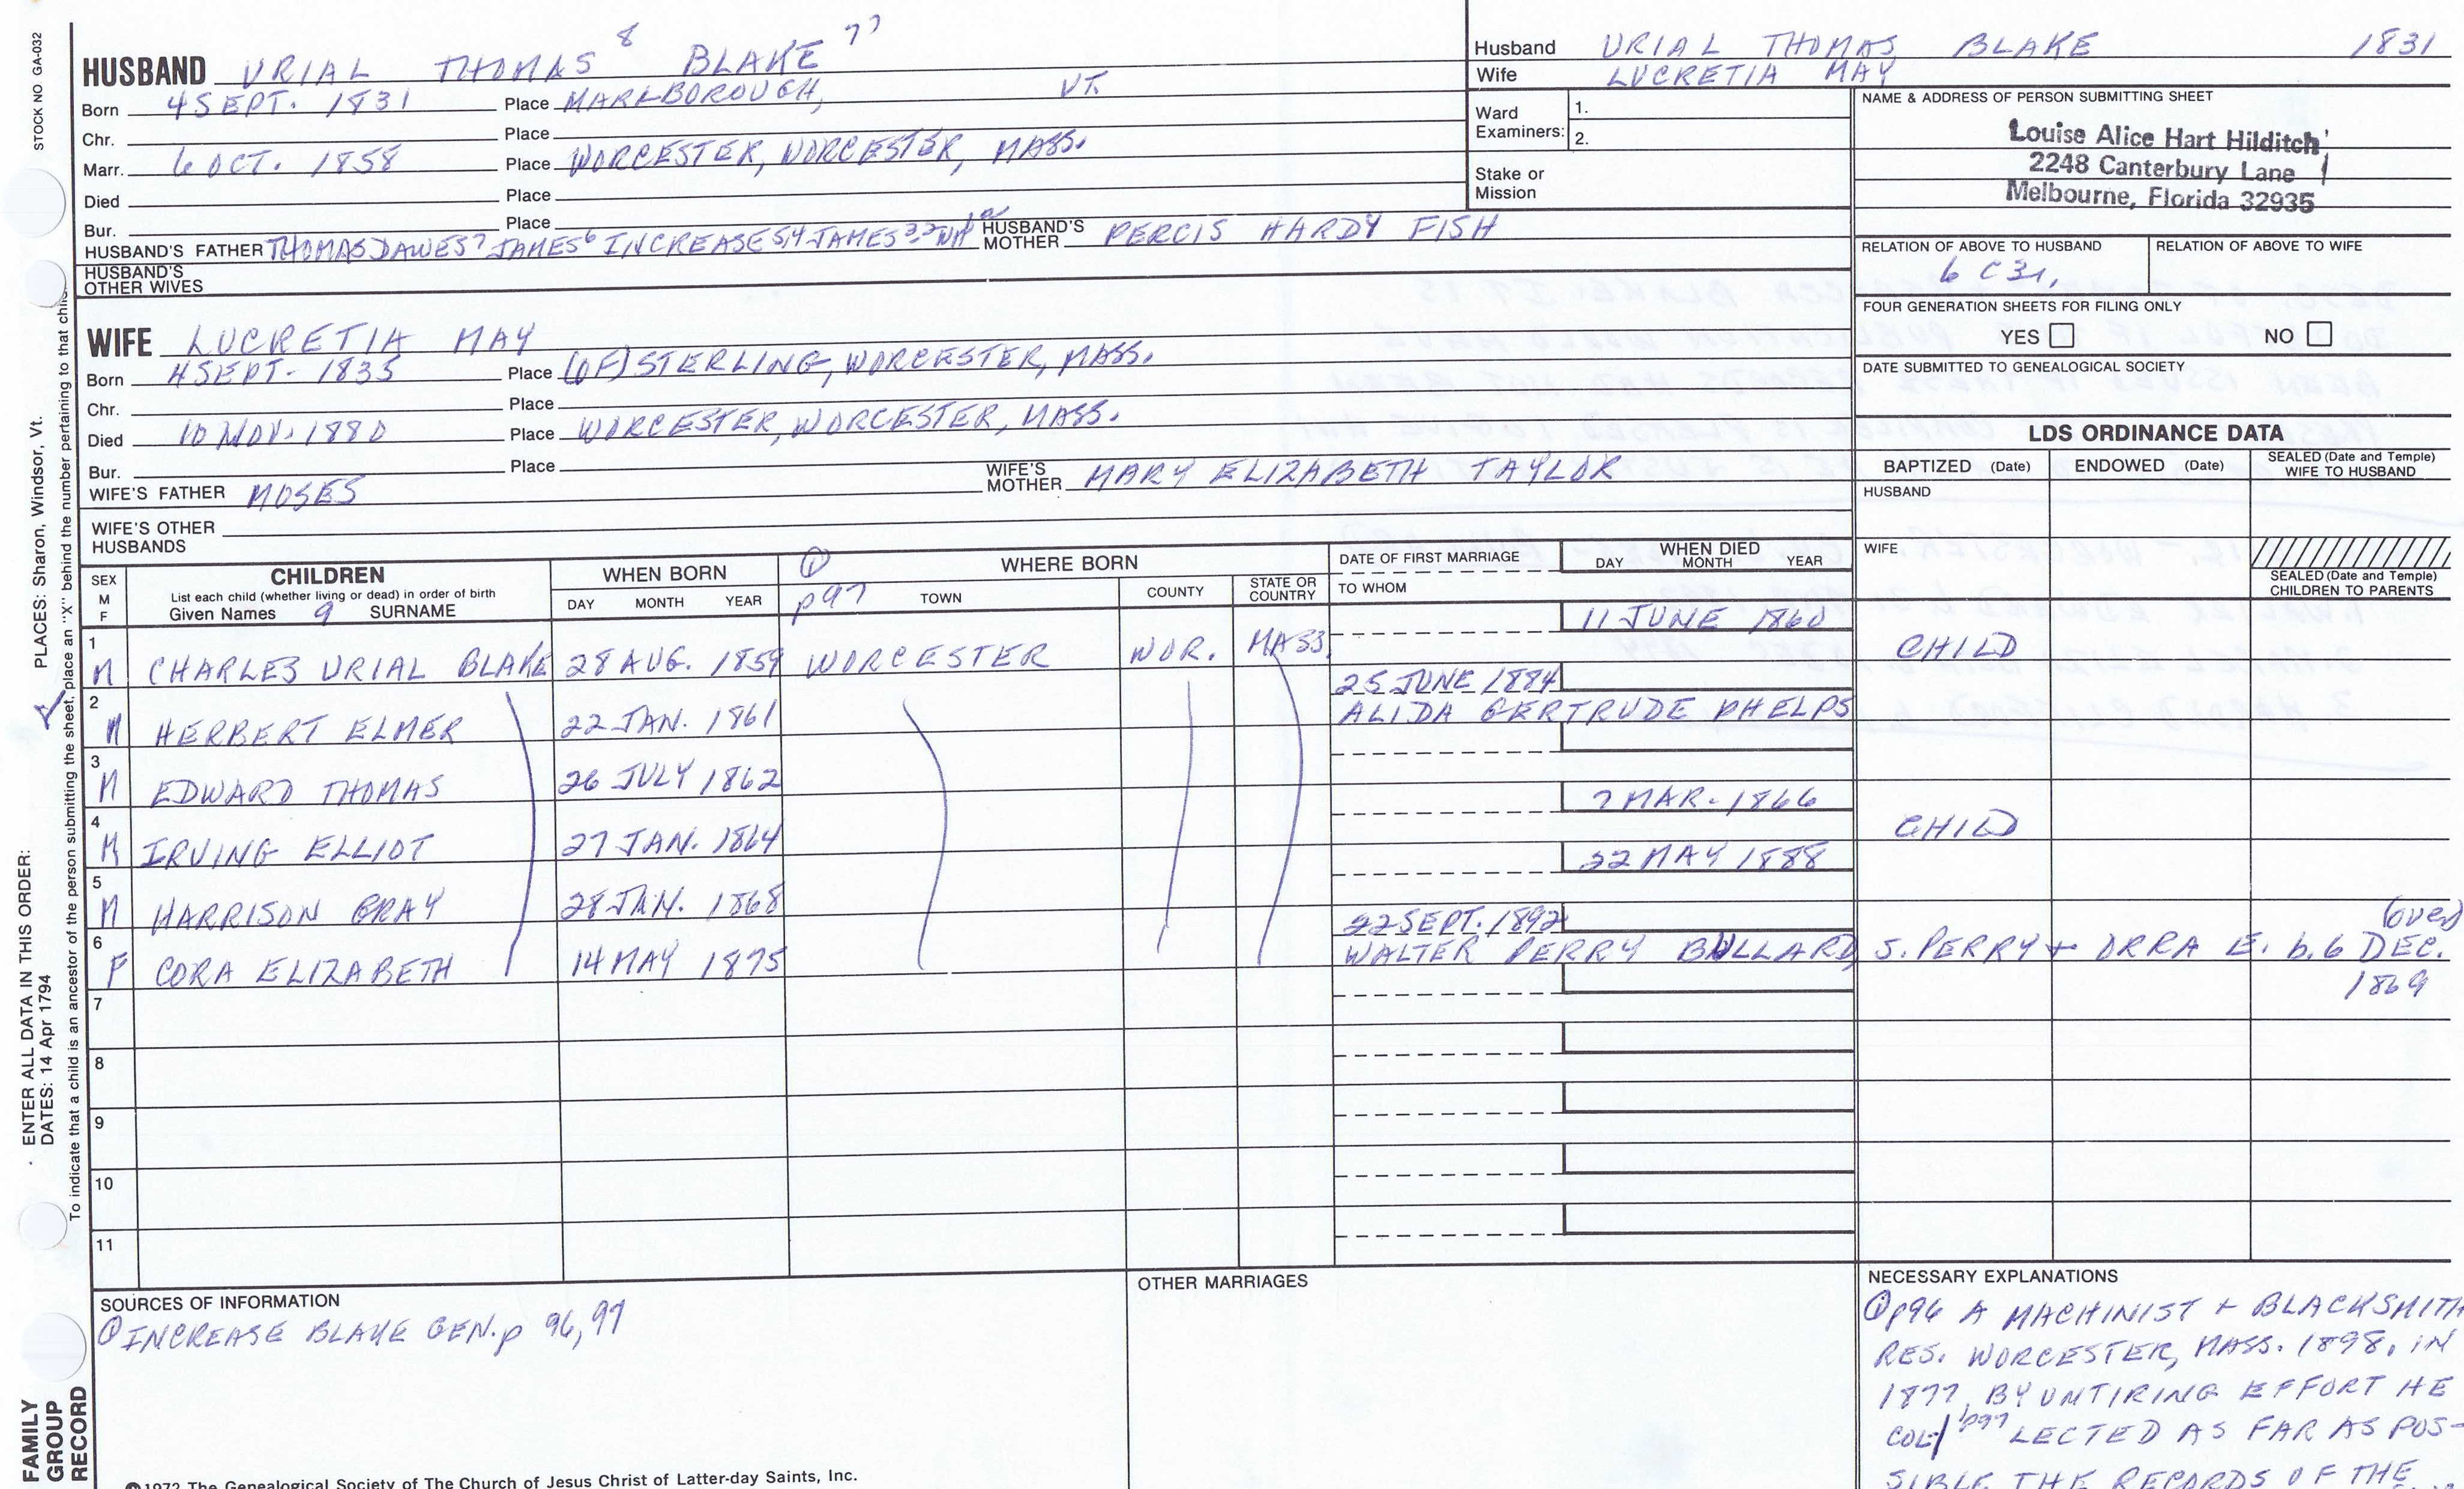 STOCK NO GA-032
PLACES: Sharon, Windsor, Vt.
ENTER ALL DATA IN THIS ORDER:
DATES: 14 Apr 1794
To indicate that a child is an ancestor of the person submitting the sheet, place an "X" behind the number pertaining to that chil
FAMILY
GROUP
RECORD
HUSBAND URIAL THOMAS 8 BLAKE 77
Born 4 SEPT. 1831 Place MARLBOROUGH, VT.
Chr. Place
Marr. 6 OCT. 1858 Place WORCESTER, WORCESTER, MASS.
Died Place
Bur. Place
HUSBAND'S FATHER THOMAS DAWES 7 JAMES 6 INCREASE 5,4 JAMES 3,2 WM 1 HUSBAND'S MOTHER PERCIS HARDY FISH
HUSBAND'S
OTHER WIVES
WIFE LUCRETIA MAY
Born 4 SEPT. 1835 Place (OF) STERLING, WORCESTER, MASS.
Chr. Place
Died 10 NOV. 1880 Place WORCESTER, WORCESTER, MASS.
Bur. Place
WIFE'S FATHER MOSES WIFE'S MOTHER MARY ELIZABETH TAYLOR
WIFE'S OTHER
HUSBANDS
Husband URIAL THOMAS BLAKE 1831
Wife LUCRETIA MAY
Ward
Examiners:
1.
2.
Stake or
Mission
NAME & ADDRESS OF PERSON SUBMITTING SHEET
Louise Alice Hart Hilditch
2248 Canterbury Lane
Melbourne, Florida 32935
RELATION OF ABOVE TO HUSBAND RELATION OF ABOVE TO WIFE
6 C 3r,
FOUR GENERATION SHEETS FOR FILING ONLY
YES NO
DATE SUBMITTED TO GENEALOGICAL SOCIETY
LDS ORDINANCE DATA
BAPTIZED (Date) ENDOWED (Date) SEALED (Date and Temple) WIFE TO HUSBAND
HUSBAND
WIFE
SEALED (Date and Temple)
CHILDREN TO PARENTS
SEX
M
F
CHILDREN
List each child (whether living or dead) in order of birth
Given Names 9 SURNAME
WHEN BORN
DAY MONTH YEAR
① p97
WHERE BORN
TOWN COUNTY STATE OR COUNTRY
DATE OF FIRST MARRIAGE
TO WHOM
WHEN DIED
DAY MONTH YEAR
1 M CHARLES URIAL BLAKE 28 AUG. 1859 WORCESTER WOR. MASS. 11 JUNE 1860 CHILD
2 M HERBERT ELMER 22 JAN. 1861 25 JUNE 1884 ALIDA GERTRUDE PHELPS
3 M EDWARD THOMAS 26 JULY 1862
4 M IRVING ELLIOT 27 JAN. 1864 7 MAR. 1866 CHILD
5 M HARRISON GRAY 28 JAN. 1868 22 MAY 1888
6 F CORA ELIZABETH 14 MAY 1875 22 SEPT. 1892 WALTER PERRY BULLARD S. PERRY + ORRA E. b. 6 DEC. 1869 (over)
7
8
9
10
11
SOURCES OF INFORMATION
① INCREASE BLAKE GEN. p 96,97
OTHER MARRIAGES
NECESSARY EXPLANATIONS
① p96 A MACHINIST + BLACKSMITH
RES. WORCESTER, MASS. 1898. IN
1877, BY UNTIRING EFFORT HE
COL/ p97 LECTED AS FAR AS POS-
SIBLE THE RECORDS OF THE
©1972 The Genealogical Society of The Church of Jesus Christ of Latter-day Saints, Inc.